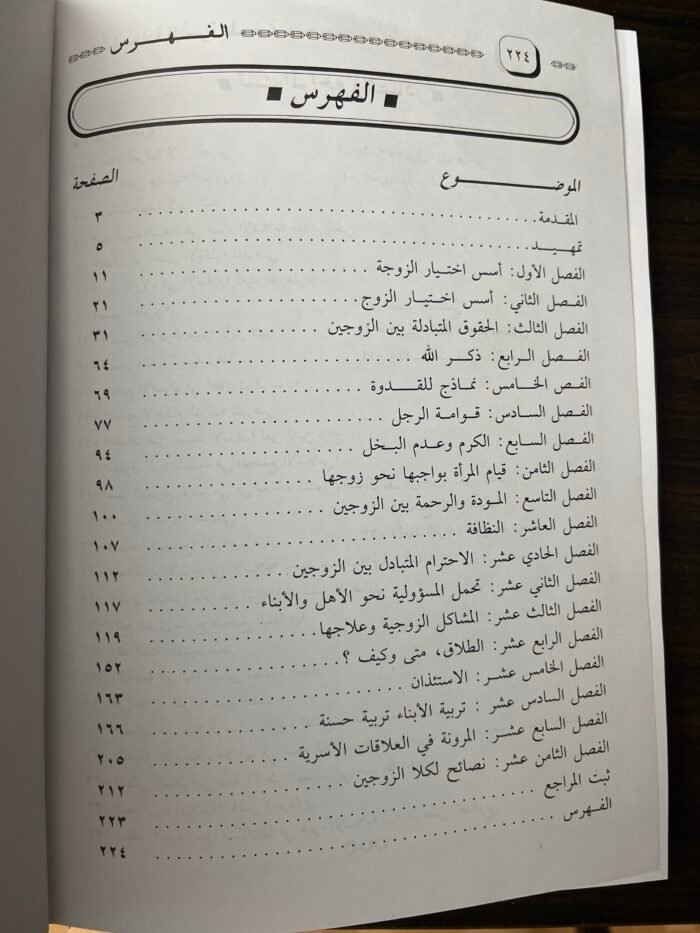 الفـهـرس ٢٢٤
■ الفهرس ■
الموضـــــوع الصفحة
المقدمة ٣
تمهـيـد ٥
الفصل الأول: أسس اختـيـار الزوجة ١١
الفـصـل الثاني: أسس اخـتـيـار الزوج ٢١
الفصل الثالث: الحقوق المتبادلة بين الزوجين ٣١
الفـصـل الـرابع: ذكـر الله ٦٤
الفـص الخـامس: نمـاذج للقـدوة ٦٩
الفصل السـادس: قـوامـة الرجل ٧٧
الفـصـل السـابع: الكرم وعـدم البـخل ٩٤
الفصل الثامن: قيام المرأة بواجبها نحو زوجها ٩٨
الفصل التاسع: المـودة والرحمة بين الزوجين ١٠٠
الفصل العاشر: النظافة ١٠٧
الفصل الحادي عشر: الاحترام المتبادل بين الزوجين ١١٢
الفصل الثاني عشر: تحمل المسؤولية نحو الأهل والأبناء ١١٧
الفصل الثالث عشر: المشاكل الزوجية وعلاجها ١١٩
الفصل الرابع عشر: الطلاق، متى وكيف ؟ ١٥٢
الفصل الخامس عشـر: الاستئذان ١٦٣
الفصل السادس عشر : تربية الأبناء تربية حسنة ١٦٦
الفصل السابع عشـر: المرونة في العلاقات الأسرية ٢٠٥
الفصل الثامن عشر: نصائح لكلا الزوجين ٢١٢
ثبت المراجع ٢٢٣
الفـهـرس ٢٢٤